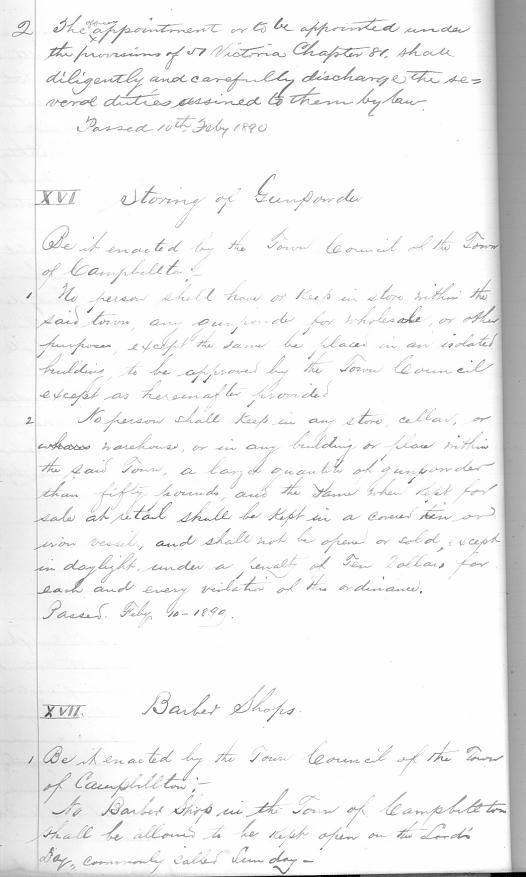 2 The appointment or to be appointed under
the provisions of 51 Victoria Chapter 81, shall
diligently and carefully discharge the se=
veral duties assined to them by law.
Passed 10th Feby 1890
XVI Storing of Gunpowder
Be it enacted by the Town Council of the Town
of Campbellton:-
1 No person shall have or keep in store within the
said town, any gunpowder for wholesale, or other
purposes, except the same be placed in an isolated
building, to be approved by the Town Council
except as hereinafter provided
2 No person shall keep in any store, cellar, or
warehouse, or in any building or place within
the said Town, a larger quantity of gunpowder
than fifty pounds, and the same when kept for
sale at retail shall be kept in a covered tin or
iron vessel, and shall not be opened or sold, except
in daylight under a penalty of Ten Dollars for
each and every violation of this ordinance.
Passed. Feby 10-1890.
XVII. Barber Shops.
1 Be it enacted by the Town Council of the Town
of Campbellton:-
No Barber Shop in the Town of Campbellton
shall be allowed to be kept open on the Lord's
Day, commonly called Sunday-